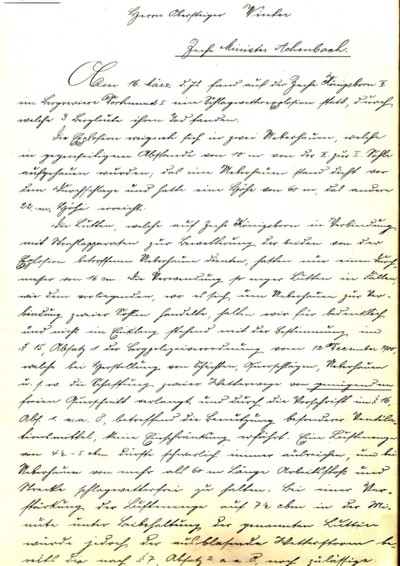 Herrn Obersteiger Winter
Zeche Minister Achenbach.
Am 16. März d. Js. fand auf der Zeche Königsborn I
im Bergrevier Dortmund I eine Schlagwetterexplosion statt, durch
welche 3 Bergleute ihren Tod fanden.
Die Explosion ereignete sich in zwei Ueberhauen, welche
in gegenseitigem Abstande von 10 m von der II. zur I. Sohle
aufgehauen wurden, das eine Ueberhauen stand dicht vor
dem Durchschlage und hatte eine Höhe von 60 m, das andere
22 m Höhe erreicht.
Die Lutten, welche auf Zeche Königsborn in Verbindung
mit Strahlapparaten zur Bewetterung der beiden von der
Explosion betroffenen Ueberhauen dienten, hatten nur einen Durch-
messer von 16 cm. Die Verwendung so enger Lutten in Fällen,
wie dem vorliegenden, wo es sich um Ueberhauen zur Ver-
bindung zweier Sohlen handelte, halten wir für bedenklich
und nicht im Einklang stehend mit der Bestimmung im
§ 15, Absatz 1 der Bergpolizeiverordnung vom 12. Dezember 1900,
welche bei Herstellung von Schächten, Querschlägen, Ueberhauen
u. s. w. die Schaffung zweier Wetterwege von genügendem
freien Querschnitt verlangt, und durch die Vorschrift im § 16,
Abs. 1 a. a. O., betreffend die Benutzung besonderer Ventila-
tionsmittel, keine Einschränkung erfährt. Eine Luftmenge
von 4½-5 cbm dürfte schwerlich immer ausreichen, um bei
Ueberhauen von mehr als 60 m Länge Arbeitsstoß und
Strecke schlagwetterfrei zu halten. Bei einer Ver-
stärkung der Luftmenge auf 7½ cbm in der Mi-
nute unter Beibehaltung der genannten Lutten
würde jedoch der ausblasende Wetterstrom be-
reits die nach § 7, Absatz 2 a. a. O. noch zulässige